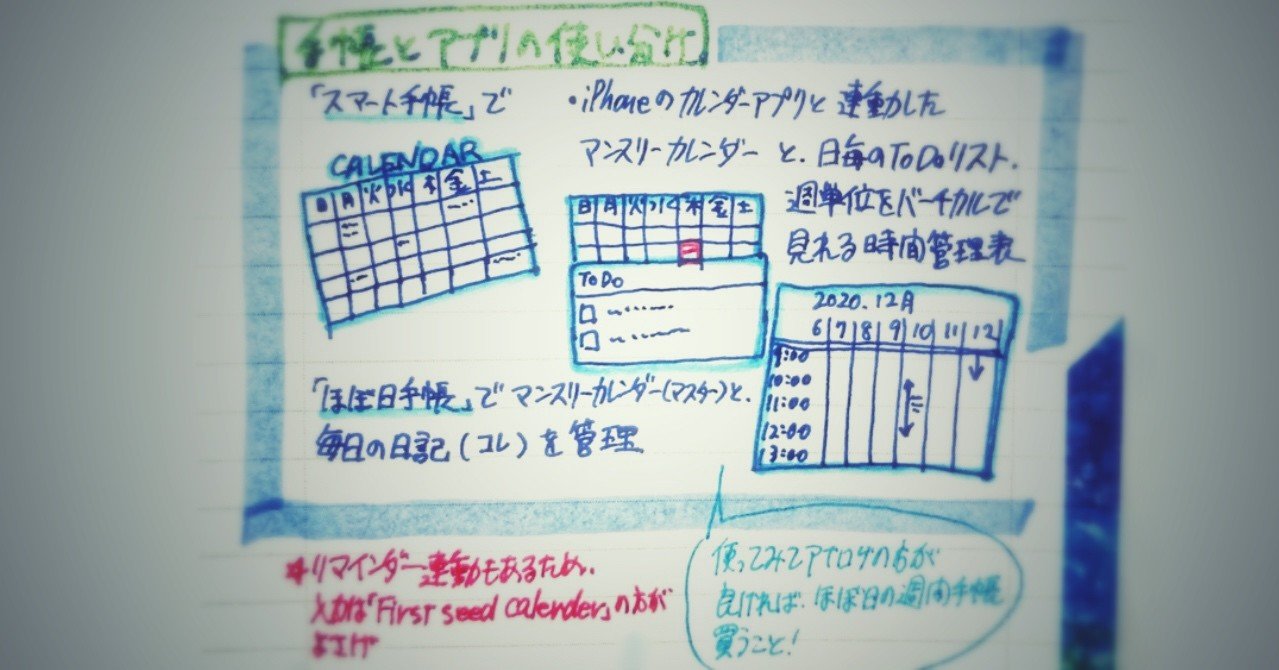 手帳とアプリの使い分け
「スマート手帳」で
・iPhoneのカレンダーアプリと連動した
マンスリーカレンダーと、日毎のToDoリスト、
週単位をバーチカルで
見れる時間管理表
CALENDAR
日 月 火 水 木 金 土
日 月 火 水 木 金 土
ToDo
2020.12月
6 7 8 9 10 11 12
9:00
10:00
11:00
12:00
13:00
「ほぼ日手帳」でマンスリーカレンダー(マスター)と、
毎日の日記(コレ)を管理
*リマインダー連動もあるため、
入力は「First seed calender」の方が
よさげ
使ってみてアナログの方が
良ければ、ほぼ日の週間手帳
買うこと!